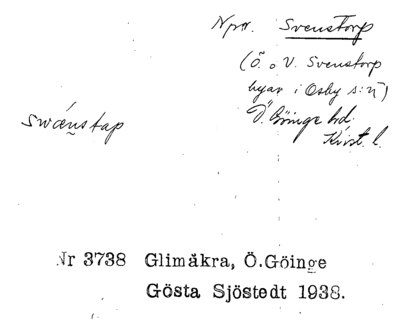 Npr. Svenstorp
(Ö. o V. Svenstorp
byar i Osby s:n)
Ö. Göinge hd.
Krist. l.
swænstap
Nr 3738 Glimåkra, Ö.Göinge
Gösta Sjöstedt 1938.